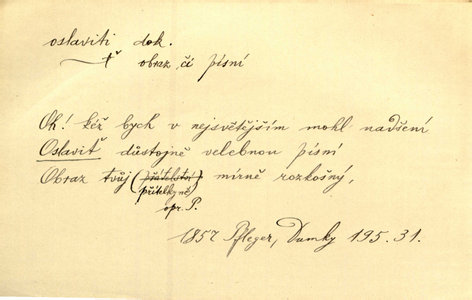 oslaviti dok.
ť obraz čí písní
Oh! kéž bych v nejsvětějším mohl nadšení
Oslaviť důstojně velebnou písní
Obraz tvůj (přátelství) mírně rozkošný,
přítelkyně
opr. P.
1857 Pfleger, Dumky 195.31.